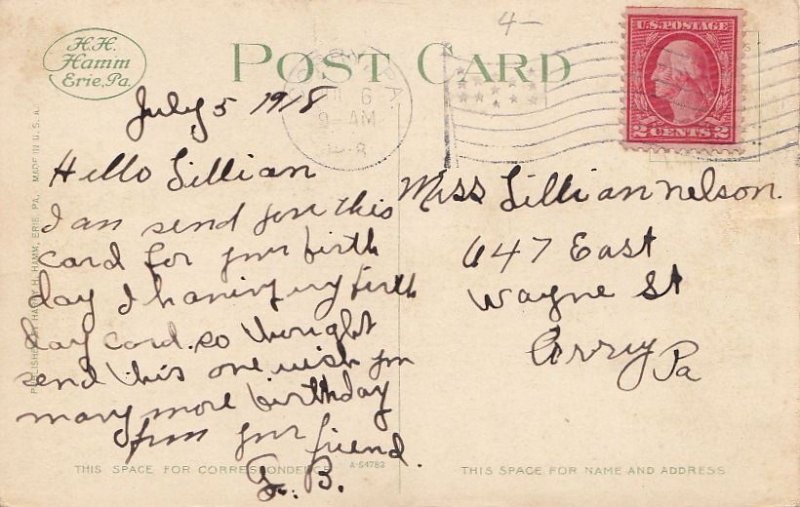 H.H.
Hamm
Erie, Pa.
POST CARD
4-
U.S. POSTAGE
2 CENTS 2
6
9-AM
July 5 1918
Hello Lillian
I am send you this
card for your birth
day I having ny birth
day card. so thought
send this one wish you
many more birthday
from your friend.
L. B.
Miss Lillian nelson.
647 East
Wayne St
Corry Pa
PUBLISHED BY HARRY H. HAMM, ERIE, PA. MADE IN U.S.A.
THIS SPACE FOR CORRESPONDENCE A-54782
THIS SPACE FOR NAME AND ADDRESS